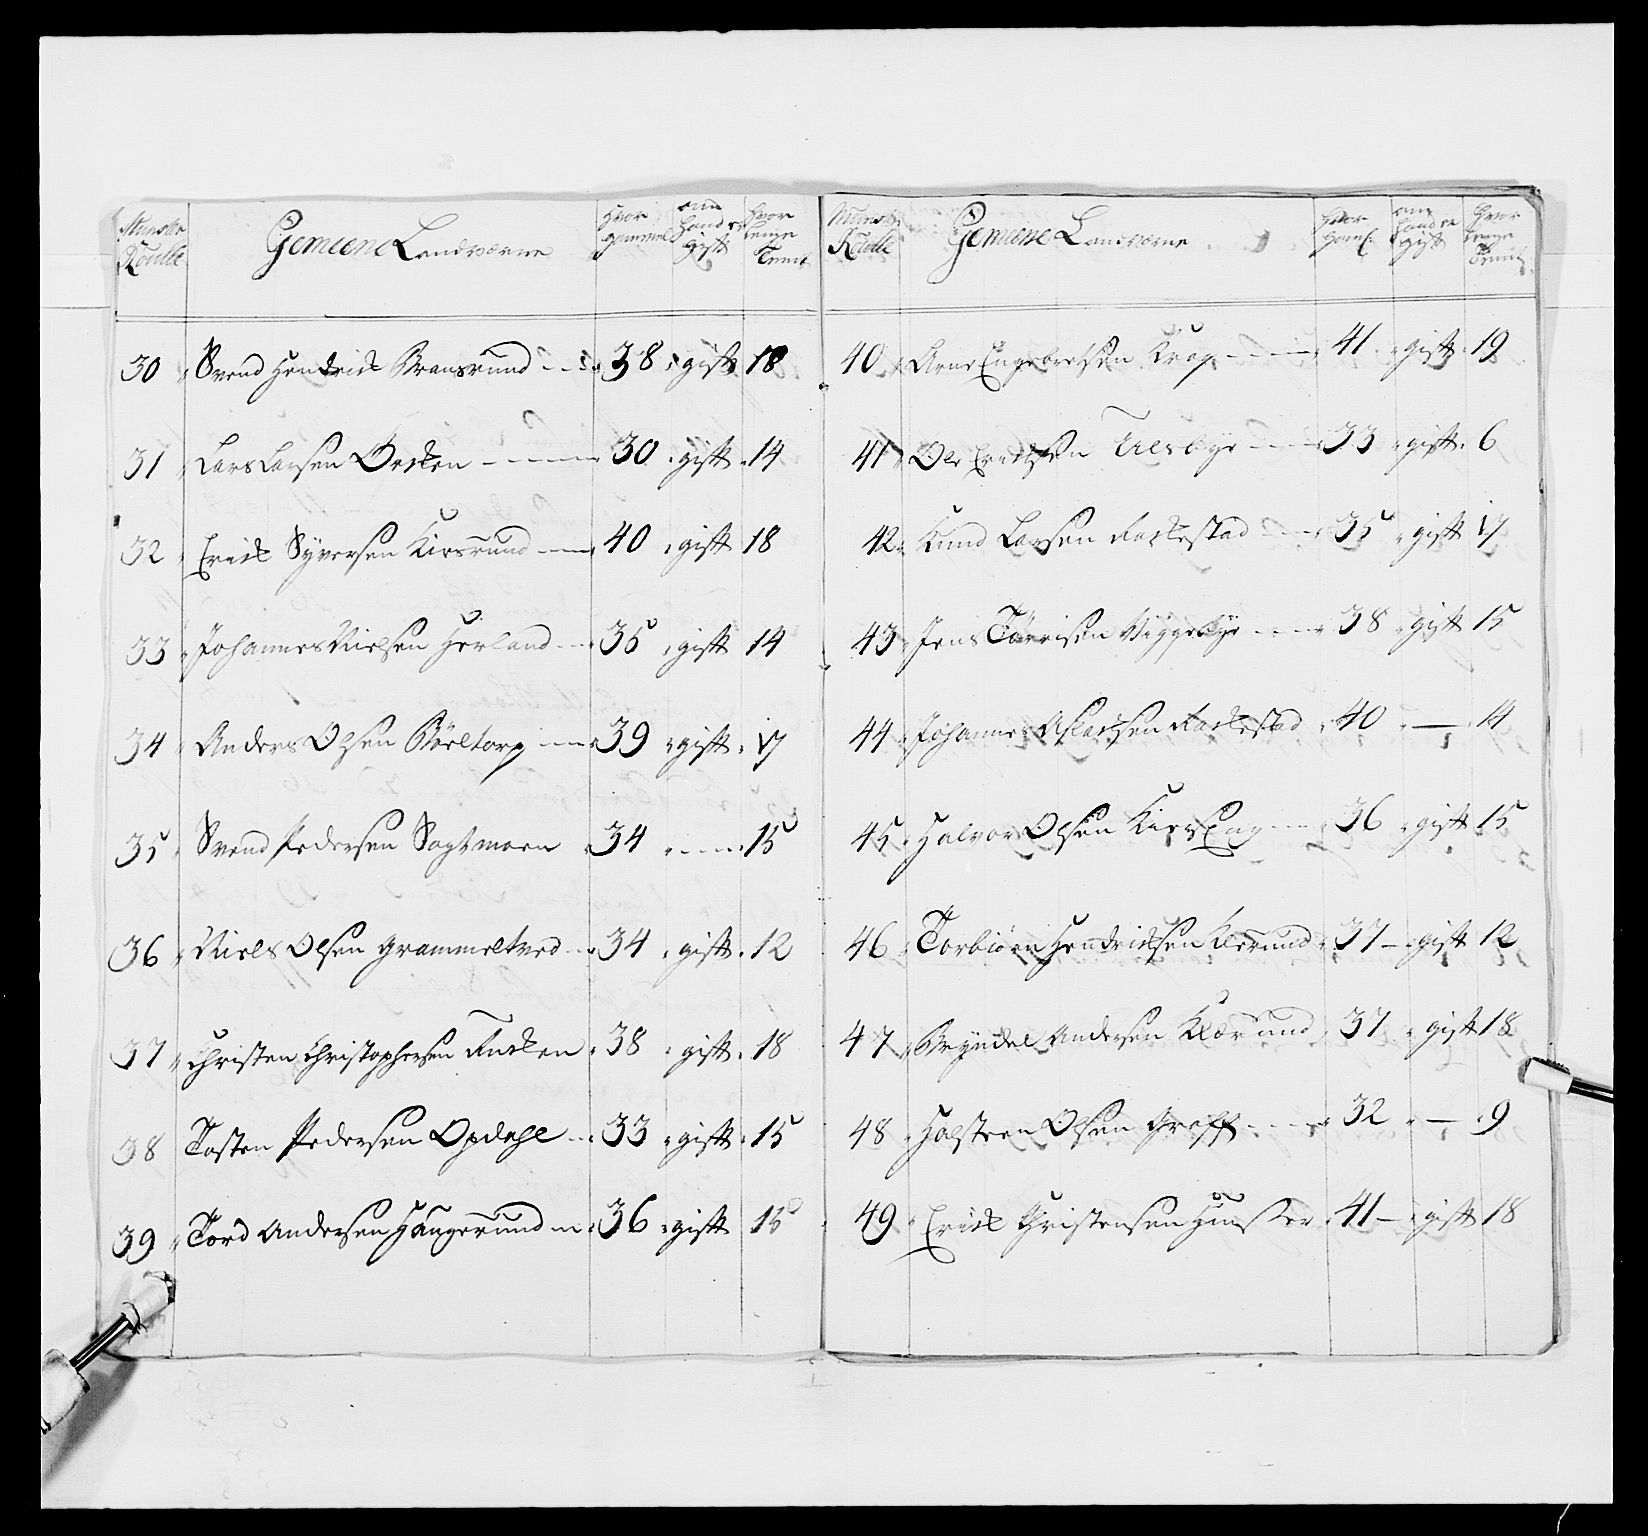 Munster Roulle
Gemeene Landværne
Hvor Gammel
om hand er Gift
Hvor lenge Tient
30 Svend Hendrich Bransrund 38 gift 18
31 Lars Larsen Ørcken 30 gift 14
32 Erich Syversen Kirsrund 40 gift 18
33 Johannes Nielsen Herland 35 gift 14
34 Anders Olsen Böeltorp 39 gift 17
35 Svend Pedersen Sogtmoen 34 15
36 Niels Olsen Grammeltved 34 gift 12
37 Christen Christophersen 38 gift 18
38 Tosten Pedersen Opdahl 33 gift 15
39 Tord Andersen Haugerund 36 gift 15
Munster Roulle
Gemeene Landværne
Hvor Gaml:
om hand er gift
Hvor lenge Tient
40 Arne Engebretsen Krog 41 gift 19
41 Ole Erichsen 33 gift 6
42 Knud Larsen Rackestad 35 gift 17
43 Jens Törrisen Viggebye 38 gift 15
44 Johannes Aslachsen Rackestad 40 — 14
45 Halvor Olsen KirsEng 36 gift 15
46 Torbiörn Hendrichsen Klerund 37 gift 12
47 Bryndel Andersen Klærund 37 gift 18
48 Holsteen Olsen Groff 32 — 9
49 Erich Christensen 41 gift 18